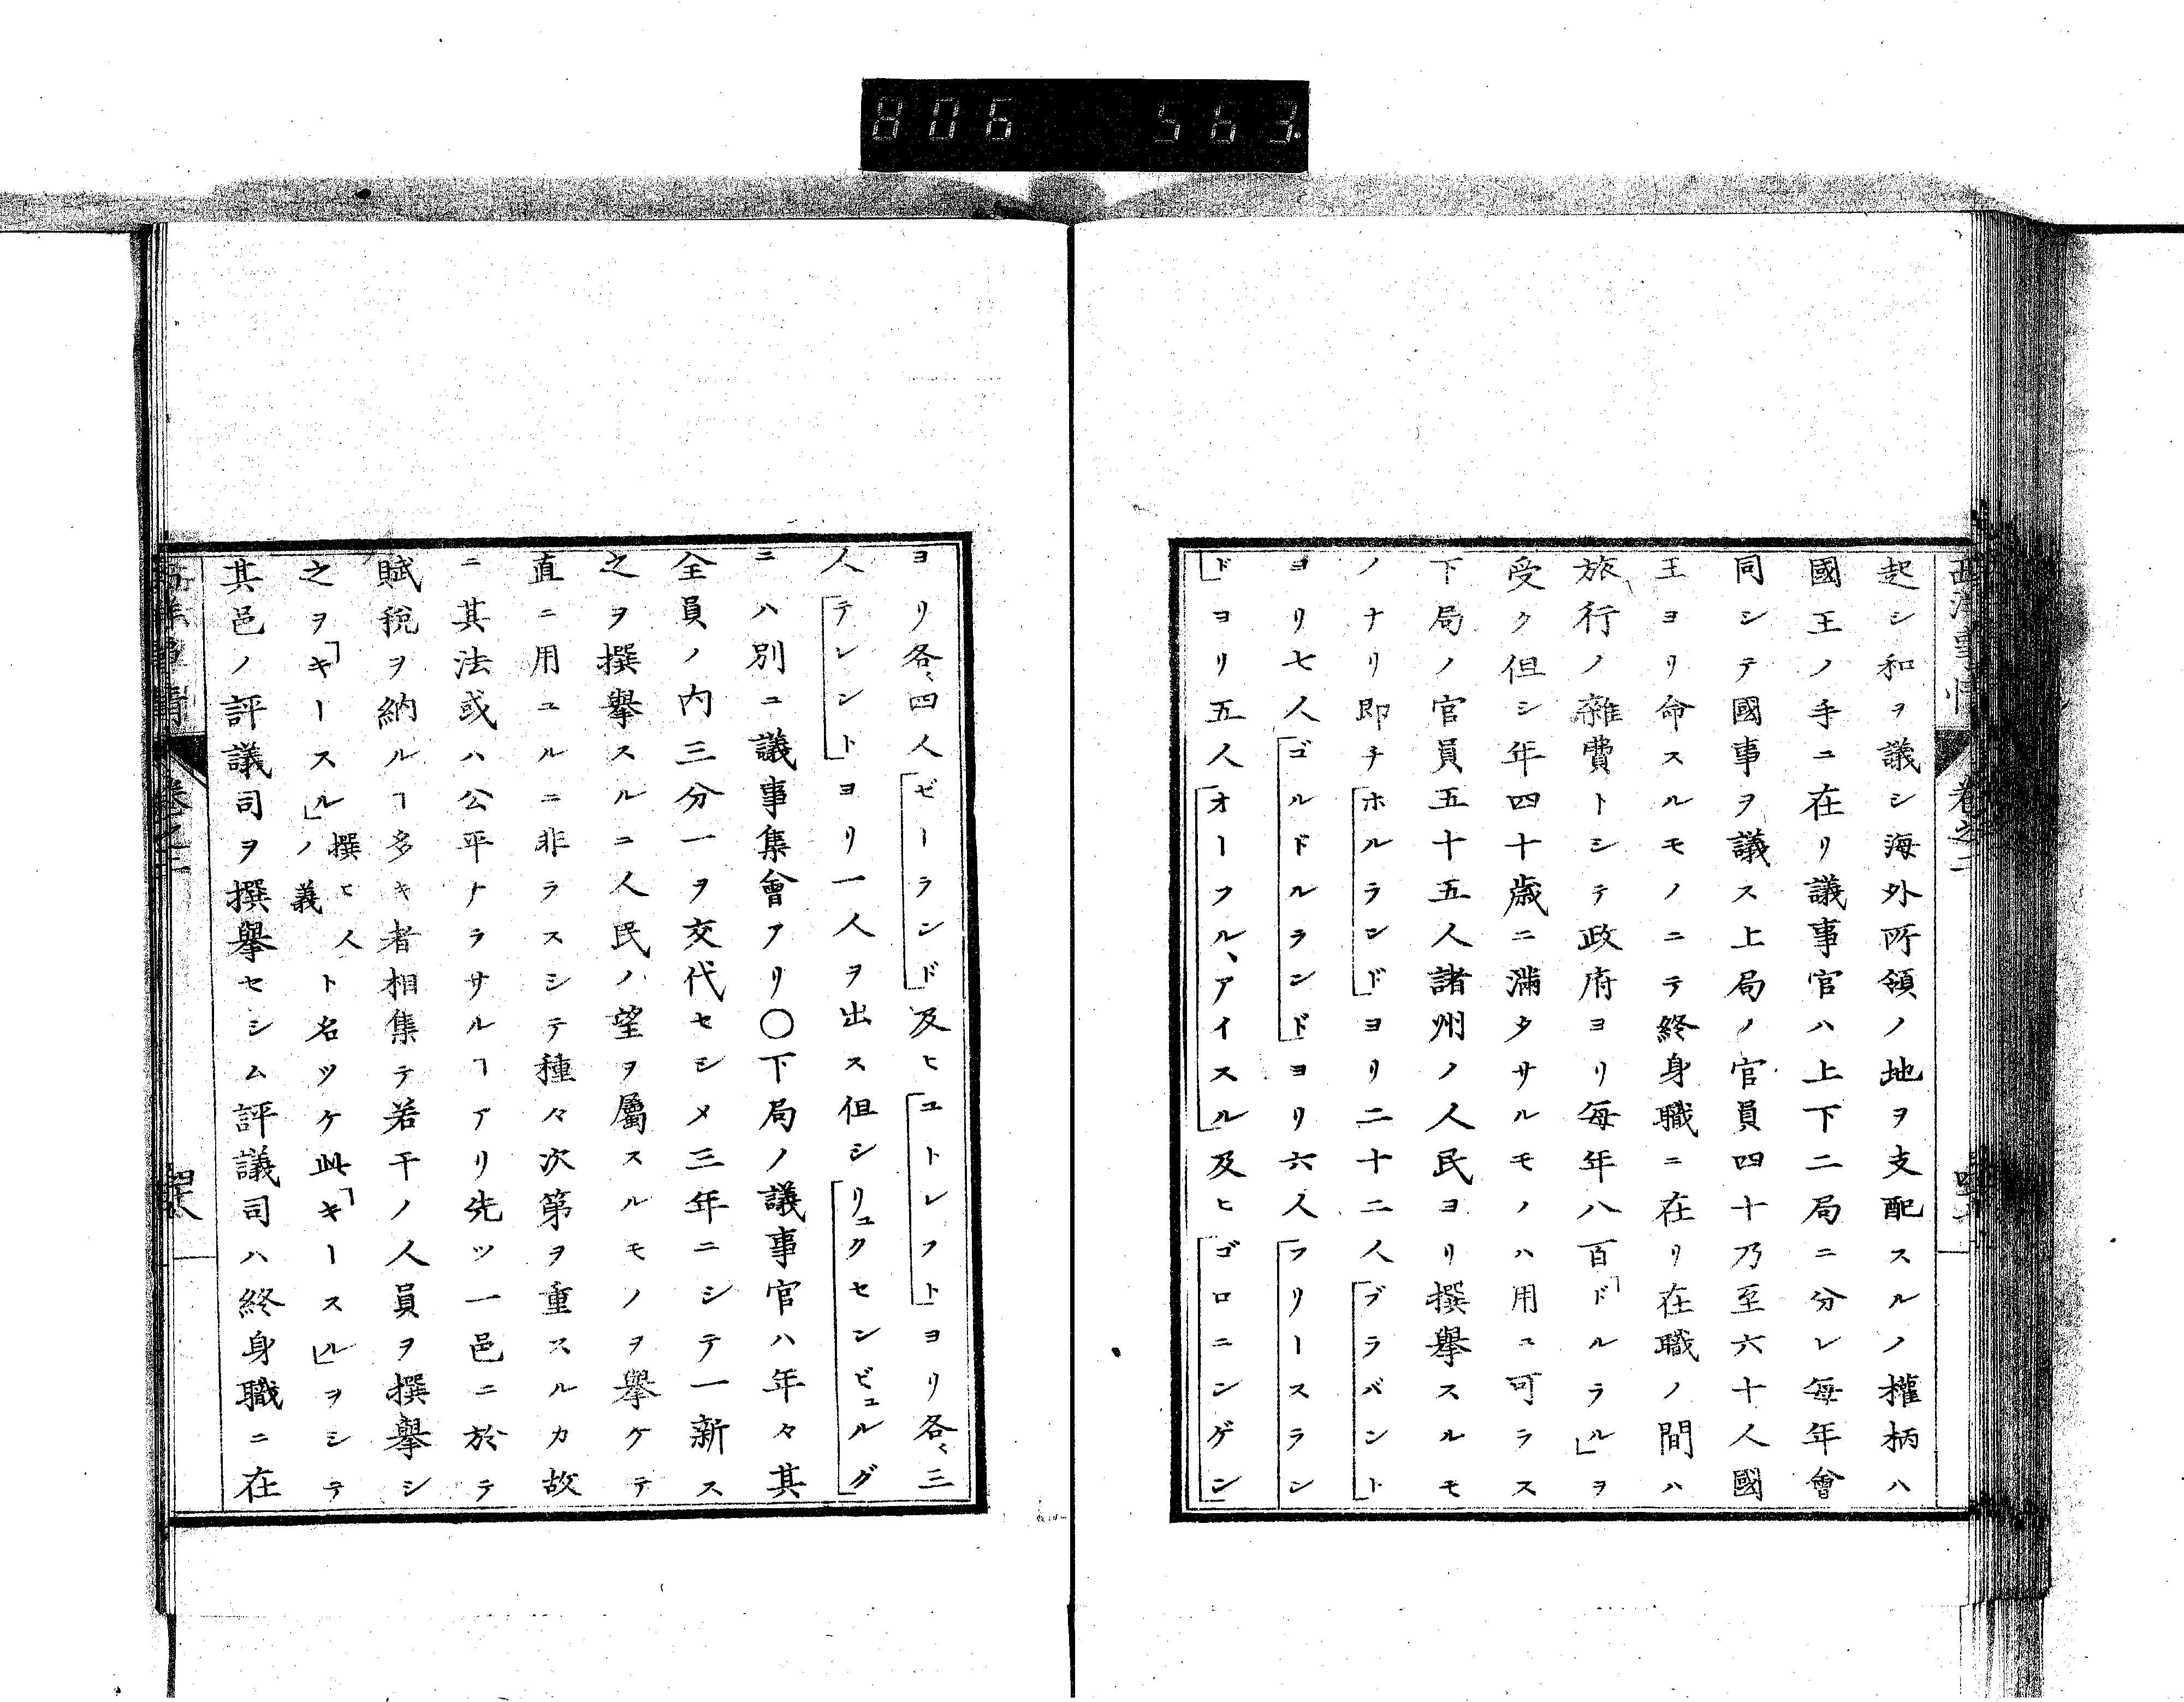 806 563
起シ和ヲ議シ海外所領ノ地ヲ支配スルノ權柄ハ
國王ノ手ニ在リ議事官ハ上下二局ニ分レ每年會
同シテ國事ヲ議ス上局ノ官員四十乃至六十人國
王ヨリ命スルモノニテ終身職ニ在リ在職ノ間ハ
旅行ノ雜費トシテ政府ヨリ每年八百「ドルラル」ヲ
受ク但シ年四十歲ニ滿タサルモノハ用ユ可ラス
下局ノ官員五十五人諸州ノ人民ヨリ撰擧スルモ
ノナリ即チ「ホルランド」ヨリ二十二人「ブラバント」
ヨリ七人「ゴルドルランド」ヨリ六人「フリースラン
ド」ヨリ五人「オーフル、アイスル」及ヒ「ゴロニンゲン」
ヨリ各、四人「ゼーランド」及ヒ「ユトレフト」ヨリ各、三
人「テレント」ヨリ一人ヲ出ス但シ「リュクセンビュルグ」
ニハ別ニ議事集會アリ〇下局ノ議事官ハ年々其
全員ノ内三分一ヲ交代セシメ三年ニシテ一新ス
之ヲ撰擧スルニ人民ノ望ヲ屬スルモノヲ擧ケテ
直ニ用ユルニ非ラスシテ種々次第ヲ重スルカ故
ニ其法或ハ公平ナラサルヿアリ先ツ一邑ニ於テ
賦稅ヲ納ルヿ多キ者相集テ若干ノ人員ヲ撰擧シ
之ヲ「キースル」撰ヒ人ノ義ト名ツケ此「キースル」ヲシテ
其邑ノ評議司ヲ撰擧セシム評議司ハ終身職ニ在